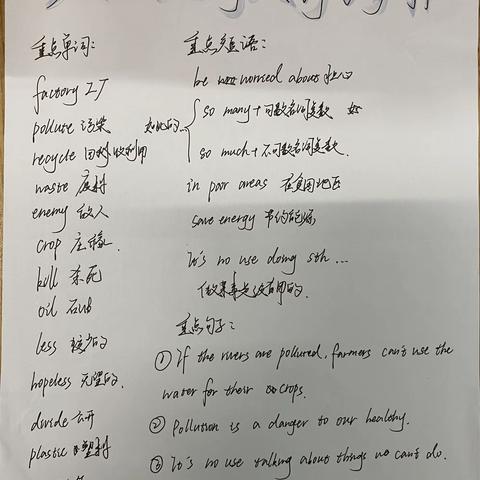 重点单词:
factory 工厂
pollute 污染
recycle 回收利用
waste 废料
enemy 敌人
crop 庄稼.
kill 杀死
oil 石油
less 较少的
hopeless 无望的.
divide 分开
plastic 塑料
重点短语:
be worried about 担心
如此的...
so many + 可数名词复数
so much + 不可数名词
in poor areas 在贫困地区
save energy 节约能源
It's no use doing sth ...
做某事是没有用的.
重点句子:
① If the rivers are polluted, farmers can't use the
water for their crops.
② Pollution is a danger to our healthy.
③ It's no use talking about things we can't do.